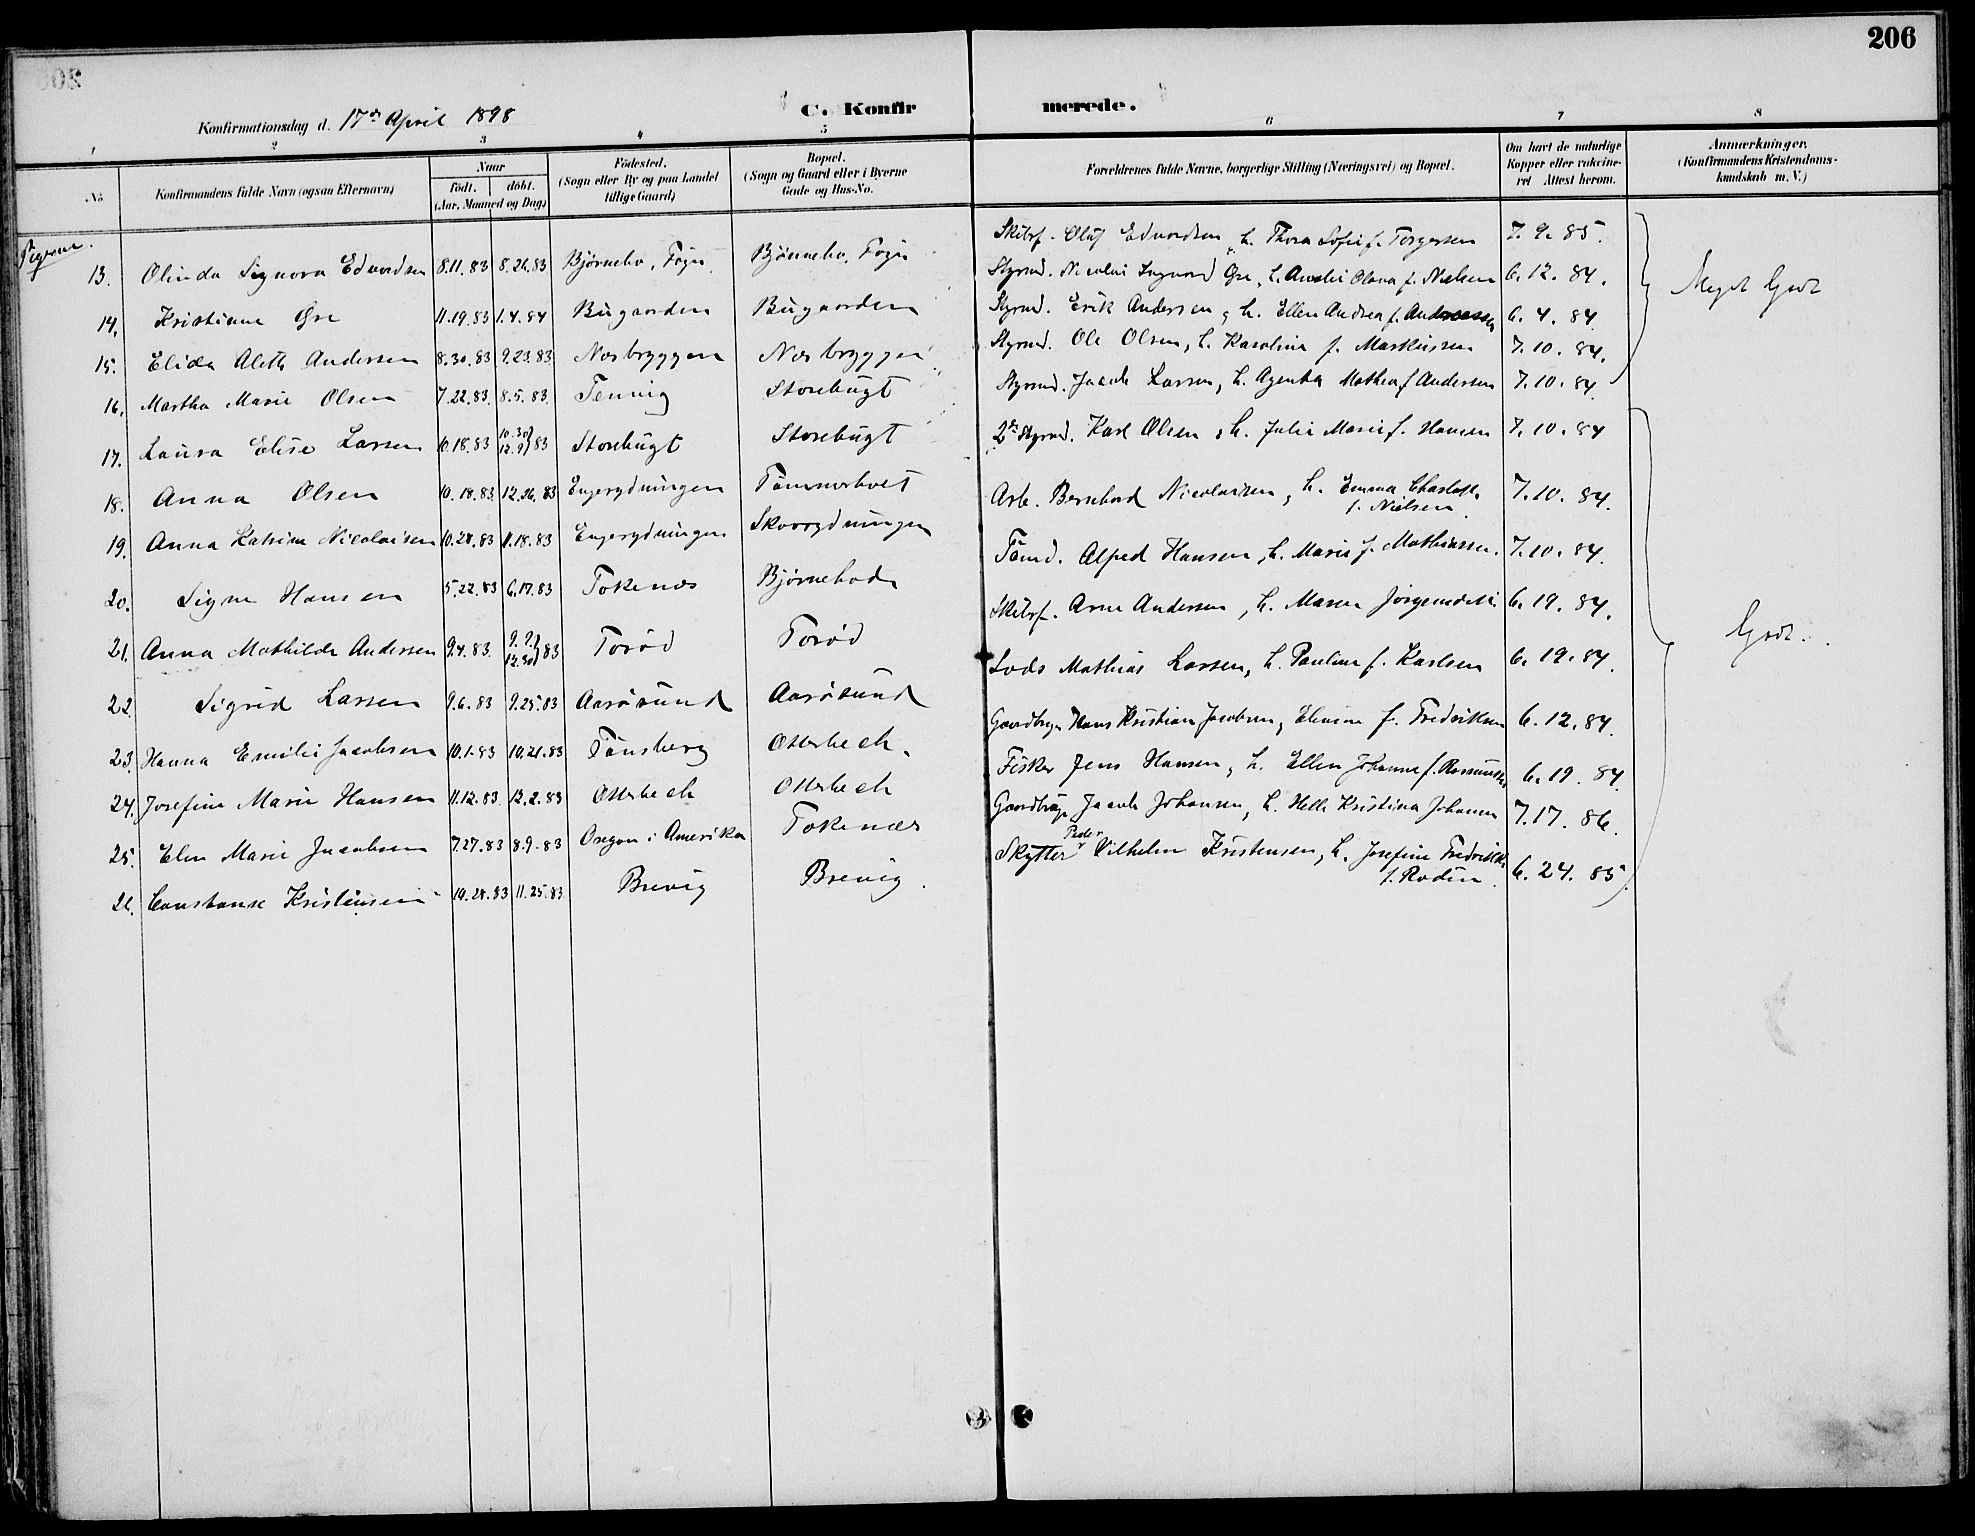 206
C. Konfirmerede.
Konfirmationsdag d. 17de April 1898
1 2 3 4 5 6 7 8
No. Konfirmandens fulde Navn (ogsaa Efternavn) Naar født. døbt. (Aar, Maaned og Dag) Fødested. (Sogn eller By og paa Landet tillige Gaard) Bopæl. (Sogn og Gaard eller i Byerne Gade og Hus-No. Forældrenes fulde Navne, borgerlige Stilling (Næringsvei) og Bopæl. Om havt de naturlige Kopper eller vakcineret Attest herom. Anmærkninger, (Konfirmandens Kristendomskundskab m. V.)
Pigerne.
13. Olinda Signora Edvardsen 8.11.83 8.26.83 Bjørnebo, Føyn Bjønnebo, Føyn Skibsf. Oluf Edvardsen, h. Thora Sofie f. Torgersen 7.9.85. Meget Godt
14. Kristiane Gre 11.19.83 1.4.84 Bugaarden Bugaarden Styrmd. Nicolai Gre, h. Amalie Olava f. Nielsen 6.12.84.
15. Elida Aleth Andersen 8.30.83 9.23.83 Nesbryggen Nesbryggen Styrmd. Erik Andersen, h. Ellen Andrea f. Andreassen 6.4.84
16. Martha Marie Olsen 7.22.83. 8.5.83. Tenvig Storebugt Styrmd. Ole Olsen, h. Karoline f. Markussen 7.10.84.
17. Laura Elise Larsen 10.18.83 10.30 12.9 } 83 Storebugt Storebugt Styrmd. Jacob Larsen, h. Agentha Mathea f. Andersen 7.10.84
18. Anna Olsen 10.18.83 12.26.83 Engerydningen Tømmerholt 2den Styrmd. Karl Olsen, h. Julie Marie f. Hansen 7.10.84 Godt.
19. Anna Katrine Nicolaisen 10.28.83 11.18.83 Engerydningen Skovrydningen Arb. Bernhard Nicolaisen, h. Emma Charlotte f. Nielsen 7.10.84.
20. Signe Hansen 5.22.83 6.17.83 Tokenes Bjørnebode Tømd. Alfred Hansen, h. Marie f. Mathiassen. 7.10.84.
21. Anna Mathilde Andersen 9.4.83. 9.9 12.30 } 83 Torød Torød Skibsf. Arne Andersen, h. Maren Jørgensdatt. 6.19.84.
22. Sigrid Larsen 9.6.83 9.25.83 Aarøsund Aarøsund Lods Mathias Larsen, h. Pauline f. Karlsen 6.19.84.
23. Hanna Emilie Jacobsen 10.1.83 10.21.83 Tønsberg Otterbech. Gaardbrger Hans Kristian Jacobsen, Elevine f. Fredriksen 6.12.84.
24. Josefine Marie Hansen 11.12.83. 12.2.83 Otterbech Otterbech Fisker Jens Hansen, h. Ellen Johanne f. Rasmussen 6.19.84.
25. Elen Marie Jacobsen 7.27.83 8.9.83 Oregon i Amerika Tokenes Gaardbrger Jacob Johansen, h. Helle Kristina Johansen 7.17.86.
26. Constanse Kristensen 10.28.83 11.25.83 Brevig Brevig. Skytter Peder Vilhelm Kristensen, h. Josefine Fredrikke f. Rodin. 6.24.85